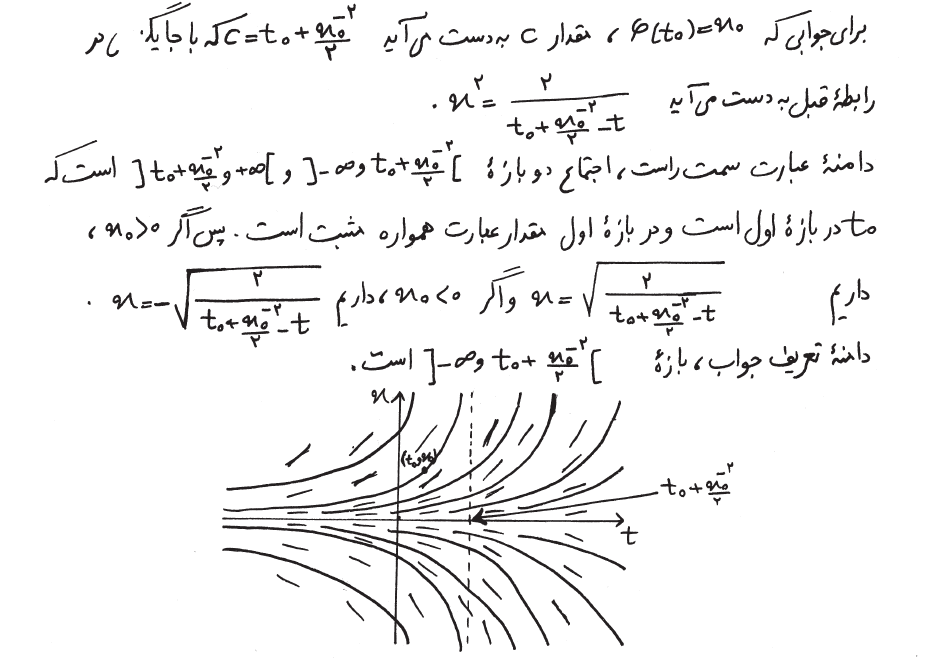 برای جوابی که φ(t₀)=x₀ ، مقدار C به دست می‌آید C=t₀+x₀⁻²/۲ که با در
رابطهٔ قبل به دست می‌آید x²=۲/(t₀+x₀⁻²/۲-t) .
دامنهٔ عبارت سمت راست، اجتماع دو بازهٔ ]-∞ و t₀+x₀⁻²/۲[ و ]t₀+x₀⁻²/۲ و +∞[ است که
t₀ در بازهٔ اول است و در بازهٔ اول مقدار عبارت همواره مثبت است. پس اگر x₀>۰ ،
داریم x=√(۲/(t₀+x₀⁻²/۲-t)) و اگر x₀<۰ ، داریم x=-√(۲/(t₀+x₀⁻²/۲-t)) .
دامنهٔ تعریف جواب، بازهٔ ]-∞ و t₀+x₀⁻²/۲[ است.
x
(t₀,x₀)
t₀+x₀⁻²/۲
t